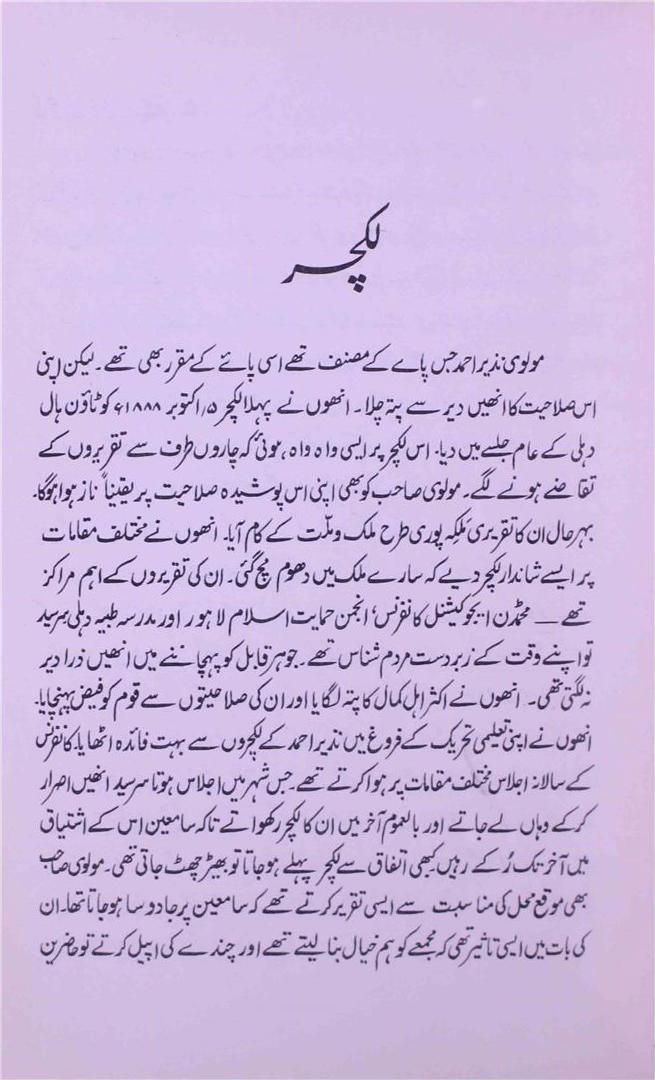 لکچر
مولوی نذیر احمد جس پاے کے مصنف تھے اسی پائے کے مقرر بھی تھے۔ لیکن اپنی
اس صلاحیت کا انھیں دیر سے پتہ چلا۔ انھوں نے پہلا لکچر ۵؍ اکتوبر ۱۸۸۸ء کو ٹاؤن ہال
دہلی کے عام جلسے میں دیا۔ اس لکچر پر ایسی واہ واہ ہوئی کہ چاروں طرف سے تقریروں کے
تقاضے ہونے لگے۔ مولوی صاحب کو بھی اپنی اس پوشیدہ صلاحیت پر یقیناً ناز ہوا ہوگا۔
بہرحال ان کا تقریری مَلکہ پوری طرح ملک و ملّت کے کام آیا۔ انھوں نے مختلف مقامات
پر ایسے شاندار لکچر دیے کہ سارے ملک میں دھوم مچ گئی۔ ان کی تقریروں کے اہم مراکز
تھے — محمڈن ایجوکیشنل کانفرنس، انجمن حمایت اسلام لاہور اور مدرسہ طبیہ دہلی۔ سرسید
تو اپنے وقت کے زبردست مردم شناس تھے۔ جوہر قابل کو پہچاننے میں انھیں ذرا دیر
نہ لگتی تھی۔ انھوں نے اکثر اہل کمال کا پتہ لگایا اور ان کی صلاحیتوں سے قوم کو فیض پہنچایا۔
انھوں نے اپنی تعلیمی تحریک کے فروغ میں نذیر احمد کے لکچروں سے بہت فائدہ اٹھایا۔ کانفرنس
کے سالانہ اجلاس مختلف مقامات پر ہوا کرتے تھے۔ جس شہر میں اجلاس ہوتا سرسید انھیں اصرار
کر کے وہاں لے جاتے اور بالعموم آخر میں ان کا لکچر رکھواتے تاکہ سامعین اس کے اشتیاق
میں آخر تک رُکے رہیں۔ کبھی اتفاق سے لکچر پہلے ہو جاتا تو بھیڑ چھٹ جاتی تھی۔ مولوی صاحب
بھی موقع محل کی مناسبت سے ایسی تقریر کرتے تھے کہ سامعین پر جادو سا ہو جاتا تھا۔ ان
کی بات میں ایسی تاثیر تھی کہ مجمعے کو ہم خیال بنا لیتے تھے اور چندے کی اپیل کرتے تو حاضرین